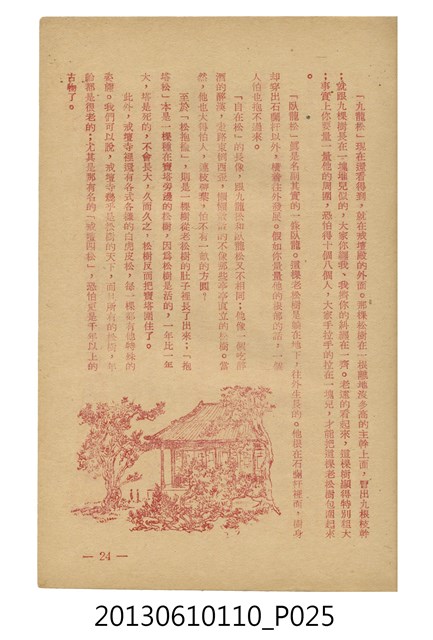 「九龍松」現在還看得到，就在戒壇殿的外面。那棵松樹在一根離地沒多高的主幹上面，冒出九根枝幹
；就跟九棵樹長在一塊堆兒似的，大家你讓我、我擠你的糾纏在一齊。老遠的看起來，這棵樹顯得特別粗大
；事實上你要量一量他的周圍，恐怕得十個八個人，大家手拉手的拉在一塊兒，才能把這棵老松樹包圍起來
。
「臥龍松」眞是名副其實的一條臥龍。這棵老松樹是躺在地下，往外生長的。他根在石欄杆裡面，樹身
却穿出石欄杆以外，橫着往外發展。假如你量量他的樹身的話，一個
人怕也抱不過來。
「自在松」的長像，跟九龍松和臥龍松又不相同；他像一個吃醉
酒的醉漢，走路東倒西歪，懶懶
的不像那些亭亭直立的松樹。當
然，他也大得怕人，連枝帶葉，怕不有一畝的方圓？
至於「松抱塔」，則是一棵樹從老松樹的肚子裡長了出來；「抱
塔松」本是一棵種在寶塔旁邊的松樹，因爲松樹是活的，一年比一年
大，塔是死的，不會長大，久而久之，松樹反而把寶塔圍住了。
此外，戒壇寺裡還有各式各種的白虎皮松，每一棵都有他特殊的
姿態。我們可以說，戒壇寺
是松樹的天下，而且所有的松樹，年
齡都是很老的；尤其是那有名的「戒壇四松」，恐怕更是千年以上的
古物了。
— 24 —
20130610110_P025